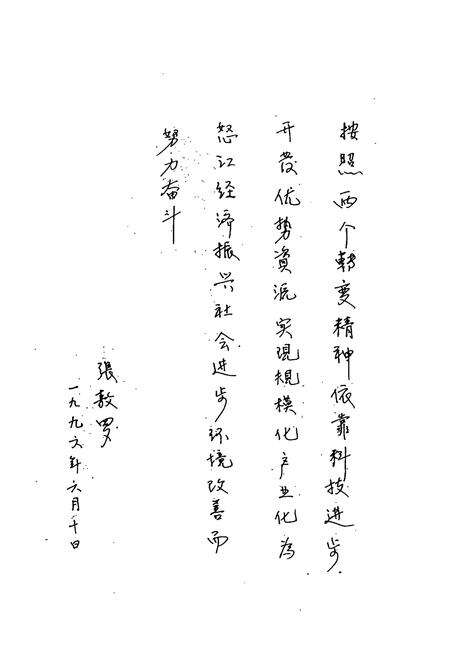 按照两个轉变精神依靠科技进步
开发优势資源实現規模化产业化為
怒江经济振兴社会进步环境改善而
努力奋斗
張敎罗
一九九六年六月十日